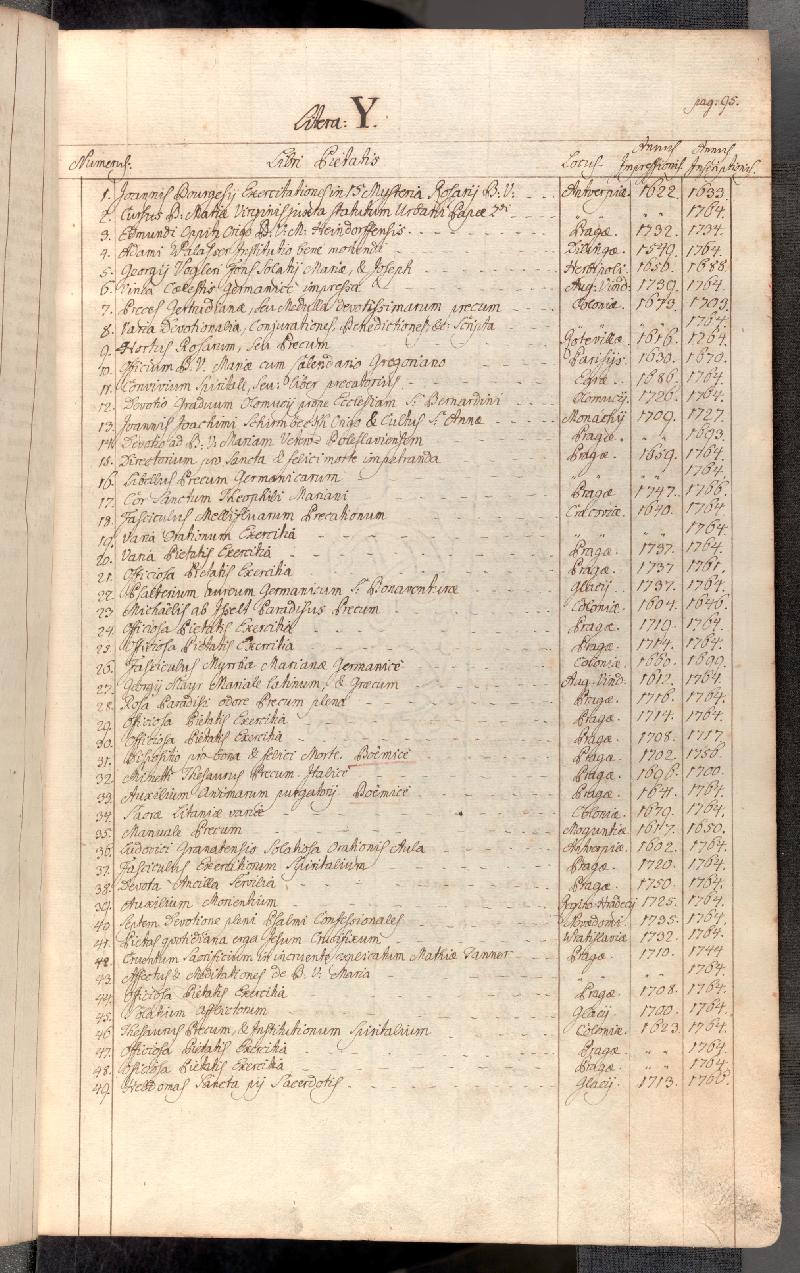 pag: 95.
Litera: Y.
Numerus. Libri Pietatis Locus. Annus Impressionis. Annus Inscriptionis.
1. Joannis Bourgesij Exercitationes in 15 Mysteria Rosarij B: V: Antverpiæ. 1622. 1633.
2. Cursus B. Mariæ Virginis juxta statutum Urbani Papæ " " 1764.
3. Edmundi Oppitz Origo B. V. M: Heindorffensis. Pragæ. 1732. 1734.
4. Adami Walasser Institutio bene moriendi Dilingæ. 1549. 1764.
5. Georgij Vogleri Fons Solatij Mariæ, & Joseph Herbipoli. 1656. 1688.
6. Vinea Cælestis Germanicè impressa Aug: Vind: 1739. 1764.
7. Preces Gertrudianæ, seu Medulla devotissimarum precum Coloniæ. 1673. 1703.
8. Varia Devotionalia, Conjurationes, Benedictiones, &c: Scripta " " 1764.
9. Hortus Rosarum, seu Precum 1616. 1764.
10. Officium B. V. Mariæ cum Calendario Gregoriano Parisijs. 1630. 1670.
11. Convivium Spirituale, seu: Liber precatorius Egræ. 1686. 1764.
12. Devotio Graduum Olomucij prope Ecclesiam S. Bernardini Olomucij. 1726. 1764.
13. Joannis Joachimi Schirmbeckh Origo & Cultus S. Annæ Monachij 1709. 1727.
14. Devotio ad B: V: Mariam Vetero Boleslaviensem Pragæ. " " 1693.
15. Directorium pro Sancta & felici morte impetranda Pragæ. 1659. 1764.
16. Libellus Precum Germanicarum " " 1764.
17. Cor Sanctum Theophili Mariani Pragæ. 1747. 1766.
18. Fasciculus Mellifluarum Precationum Cracoviæ. 1640. 1764.
19. Varia Orationum Exercitia " " 1764.
20. Varia Pietatis Exercitia Pragæ. 1737. 1764.
21. Officiosa Pietatis Exercitia Pragæ. 1737 1761.
22. Psalterium Aureum Germanicum S. Bonaventuræ Glacij. 1737. 1764.
23. Michaëlis ab Isselt Paradisus Precum Coloniæ. 1604. 1646.
24. Officiosa Pietatis Exercitia Pragæ. 1719. 1764.
25. Officiosa Pietatis Exercitia Pragæ. 1714. 1764.
26. Fasciculus Myrrhæ Marianæ Germanicè Coloniæ. 1660. 1699.
27. Georgij Mayr Mariale Latinum, & Græcum Aug: Vind: 1612. 1764.
28. Rosa Paradisi odore Precum plena Pragæ. 1716. 1764.
29. Officiosa Pietatis Exercitia Pragæ. 1714. 1764.
30. Officiosa Pietatis Exercitia Pragæ. 1708. 1717
31. Dispositio pro bona & felici Morte. Boëmicè Pragæ. 1702. 1756.
32. Thesaurus Precum Italicè Pragæ. 1696. 1700.
33. Auxilium Animarum purgatorij Boëmicè Pragæ. 1641. 1764.
34. Sacræ Litaniæ variæ Coloniæ. 1679. 1764.
35. Manuale Precum Moguntiæ 1617. 1650.
36. Ludovici Granatensis Solatiosa Orationis Aula Antverpiæ. 1602. 1764.
37. Fasciculus Exercitiorum Spiritualium Pragæ. 1720. 1764.
38. Devota Ancilla Servilia Pragæ. 1750. 1764.
39. Auxilium Morientium 1725. 1764.
40. Septem Devotione pleni Psalmi Confessionales 1735. 1764.
41. Pietas quotidiana erga Jesum Crucifixum Wratislaviæ 1732. 1764.
42. Cruentum Sacrificium in incruento explicatum Mathiæ Tanner Pragæ. 1710. 1744
43. Affectus & Meditationes de B. V. Maria " " 1764.
44. Officiosa Pietatis Exercitia Pragæ. 1708. 1764.
45. Solatium Afflictorum Glacij. 1700. 1764.
46. Thesaurus Precum, & Institutionum Spiritualium Coloniæ. 1623. 1764.
47. Officiosa Pietatis Exercitia Pragæ. " " 1764.
48. Officiosa Pietatis Exercitia Pragæ. " " 1764.
49. Hebdomas Sancta pij Sacerdotis. Glacij. 1713. 1766.